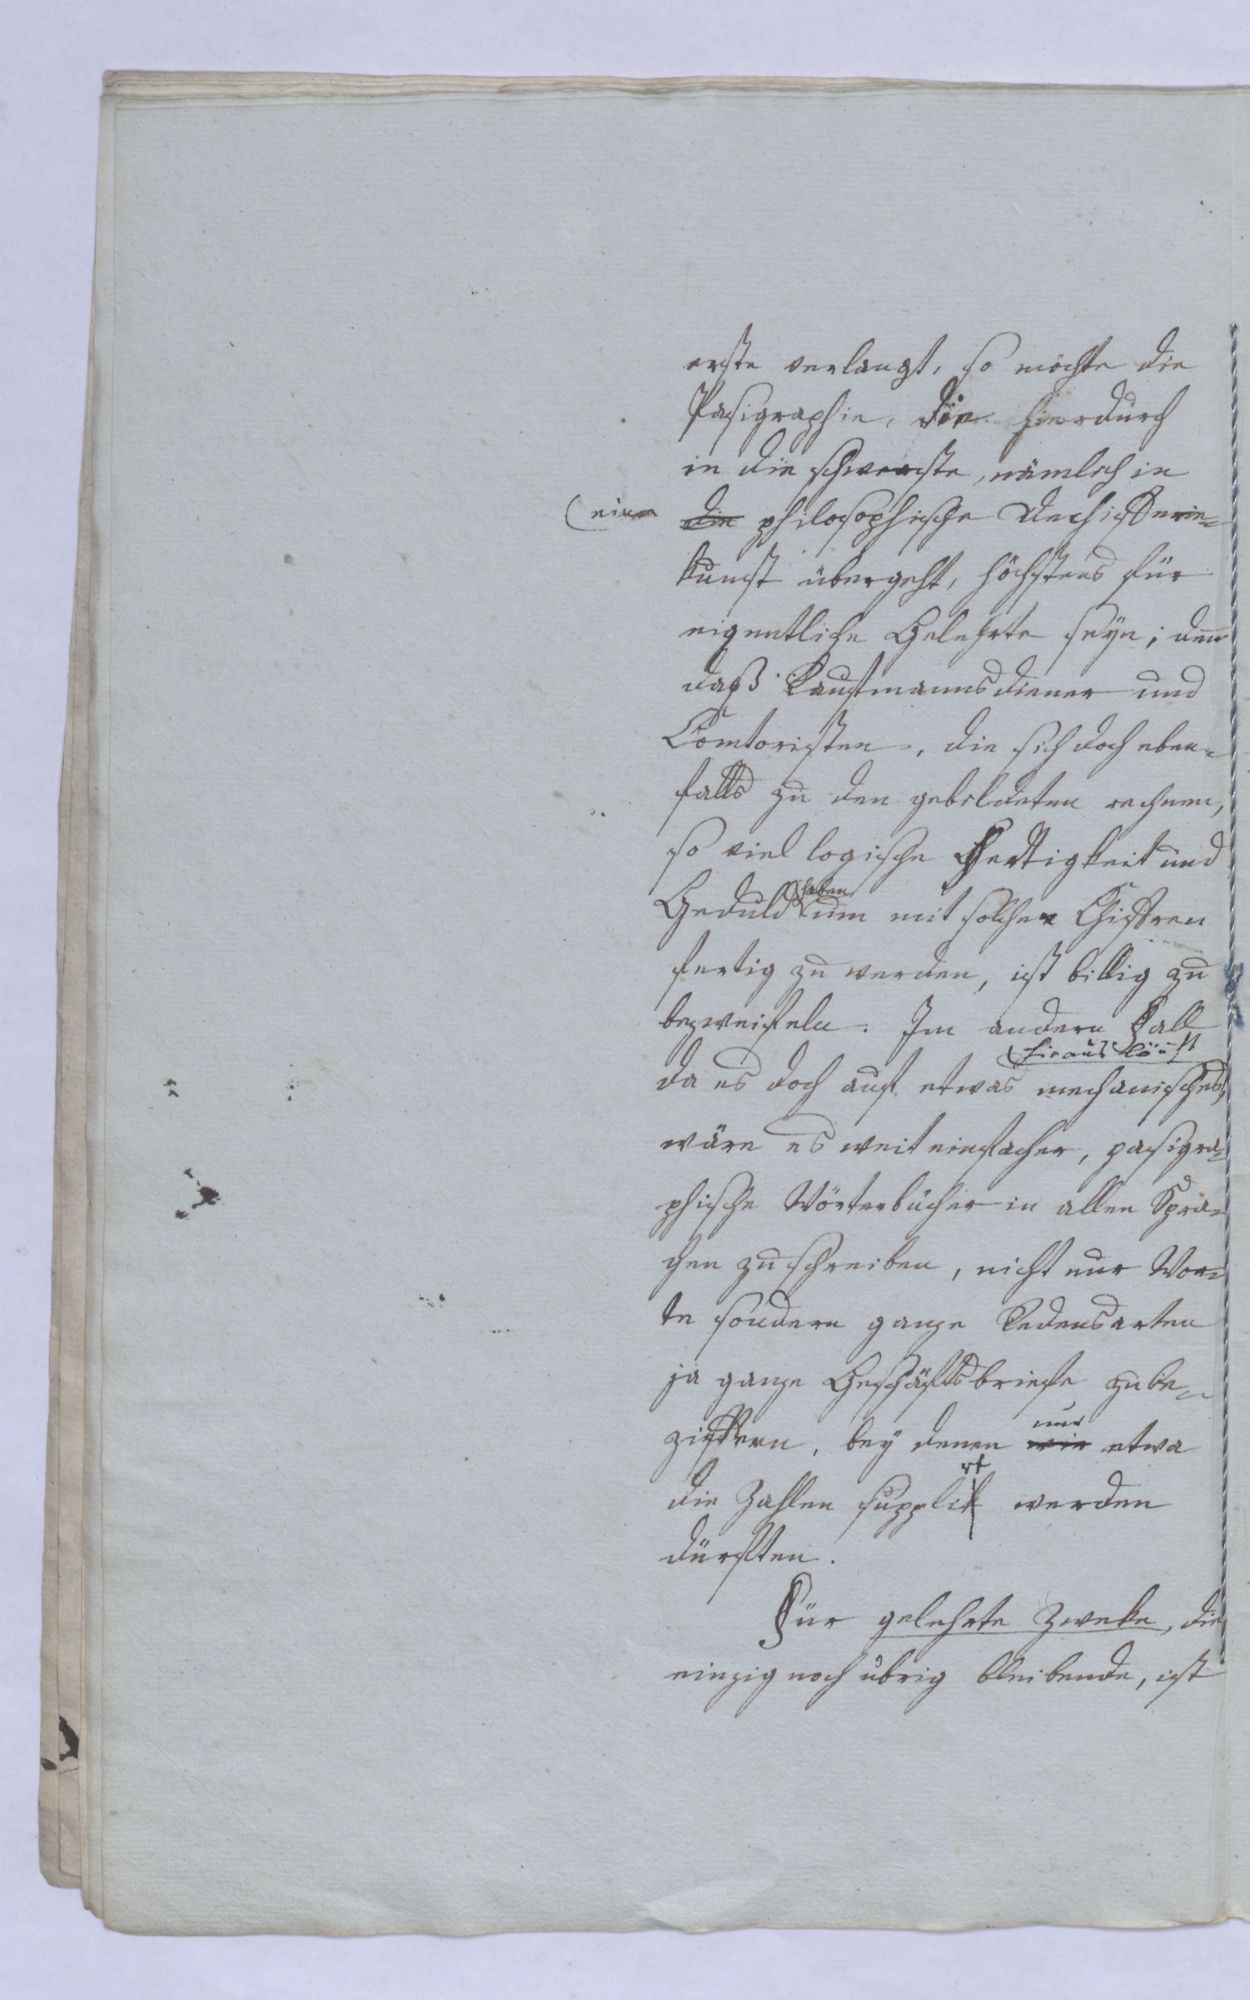 erste verlangt, so möchte die
Pasigraphie, die hierdurch
in die schwerste, nämlich in
eine die philosophische Dechiffrir-
kunst übergeht, höchstens für
eigentliche Gelehrte seyn; denn
daß Kaufmannsdiener und
Comtoristen, die sich doch eben-
falls zu den gebildeten rechnen,
so viel logische Fertigkeit und
haben
Geduld um mit solchen Chiffren
fertig zu werden, ist billig zu
bezweifeln. Im andern Fall
hinaus läuft
da es doch auf etwas mechanisches
wäre es weit einfacher, pasigra-
phische Wörterbücher in allen Spra-
chen zu schreiben, nicht nur Wor-
te sondern ganze Redensarten
ja ganze Geschäftsbriefe zu be-
ziffern, bey denen wir etwa
nur
die Zahlen supplirt werden
dürften.
Für gelehrte Zweke, die
einzig noch übrig bleibende, ist